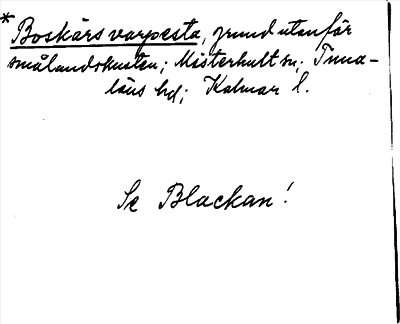 * Boskärs varpesta, grund utanför
smålandskusten; Misterhult sn; Tuna-
läns hd; Kalmar l.
Se Blackan!